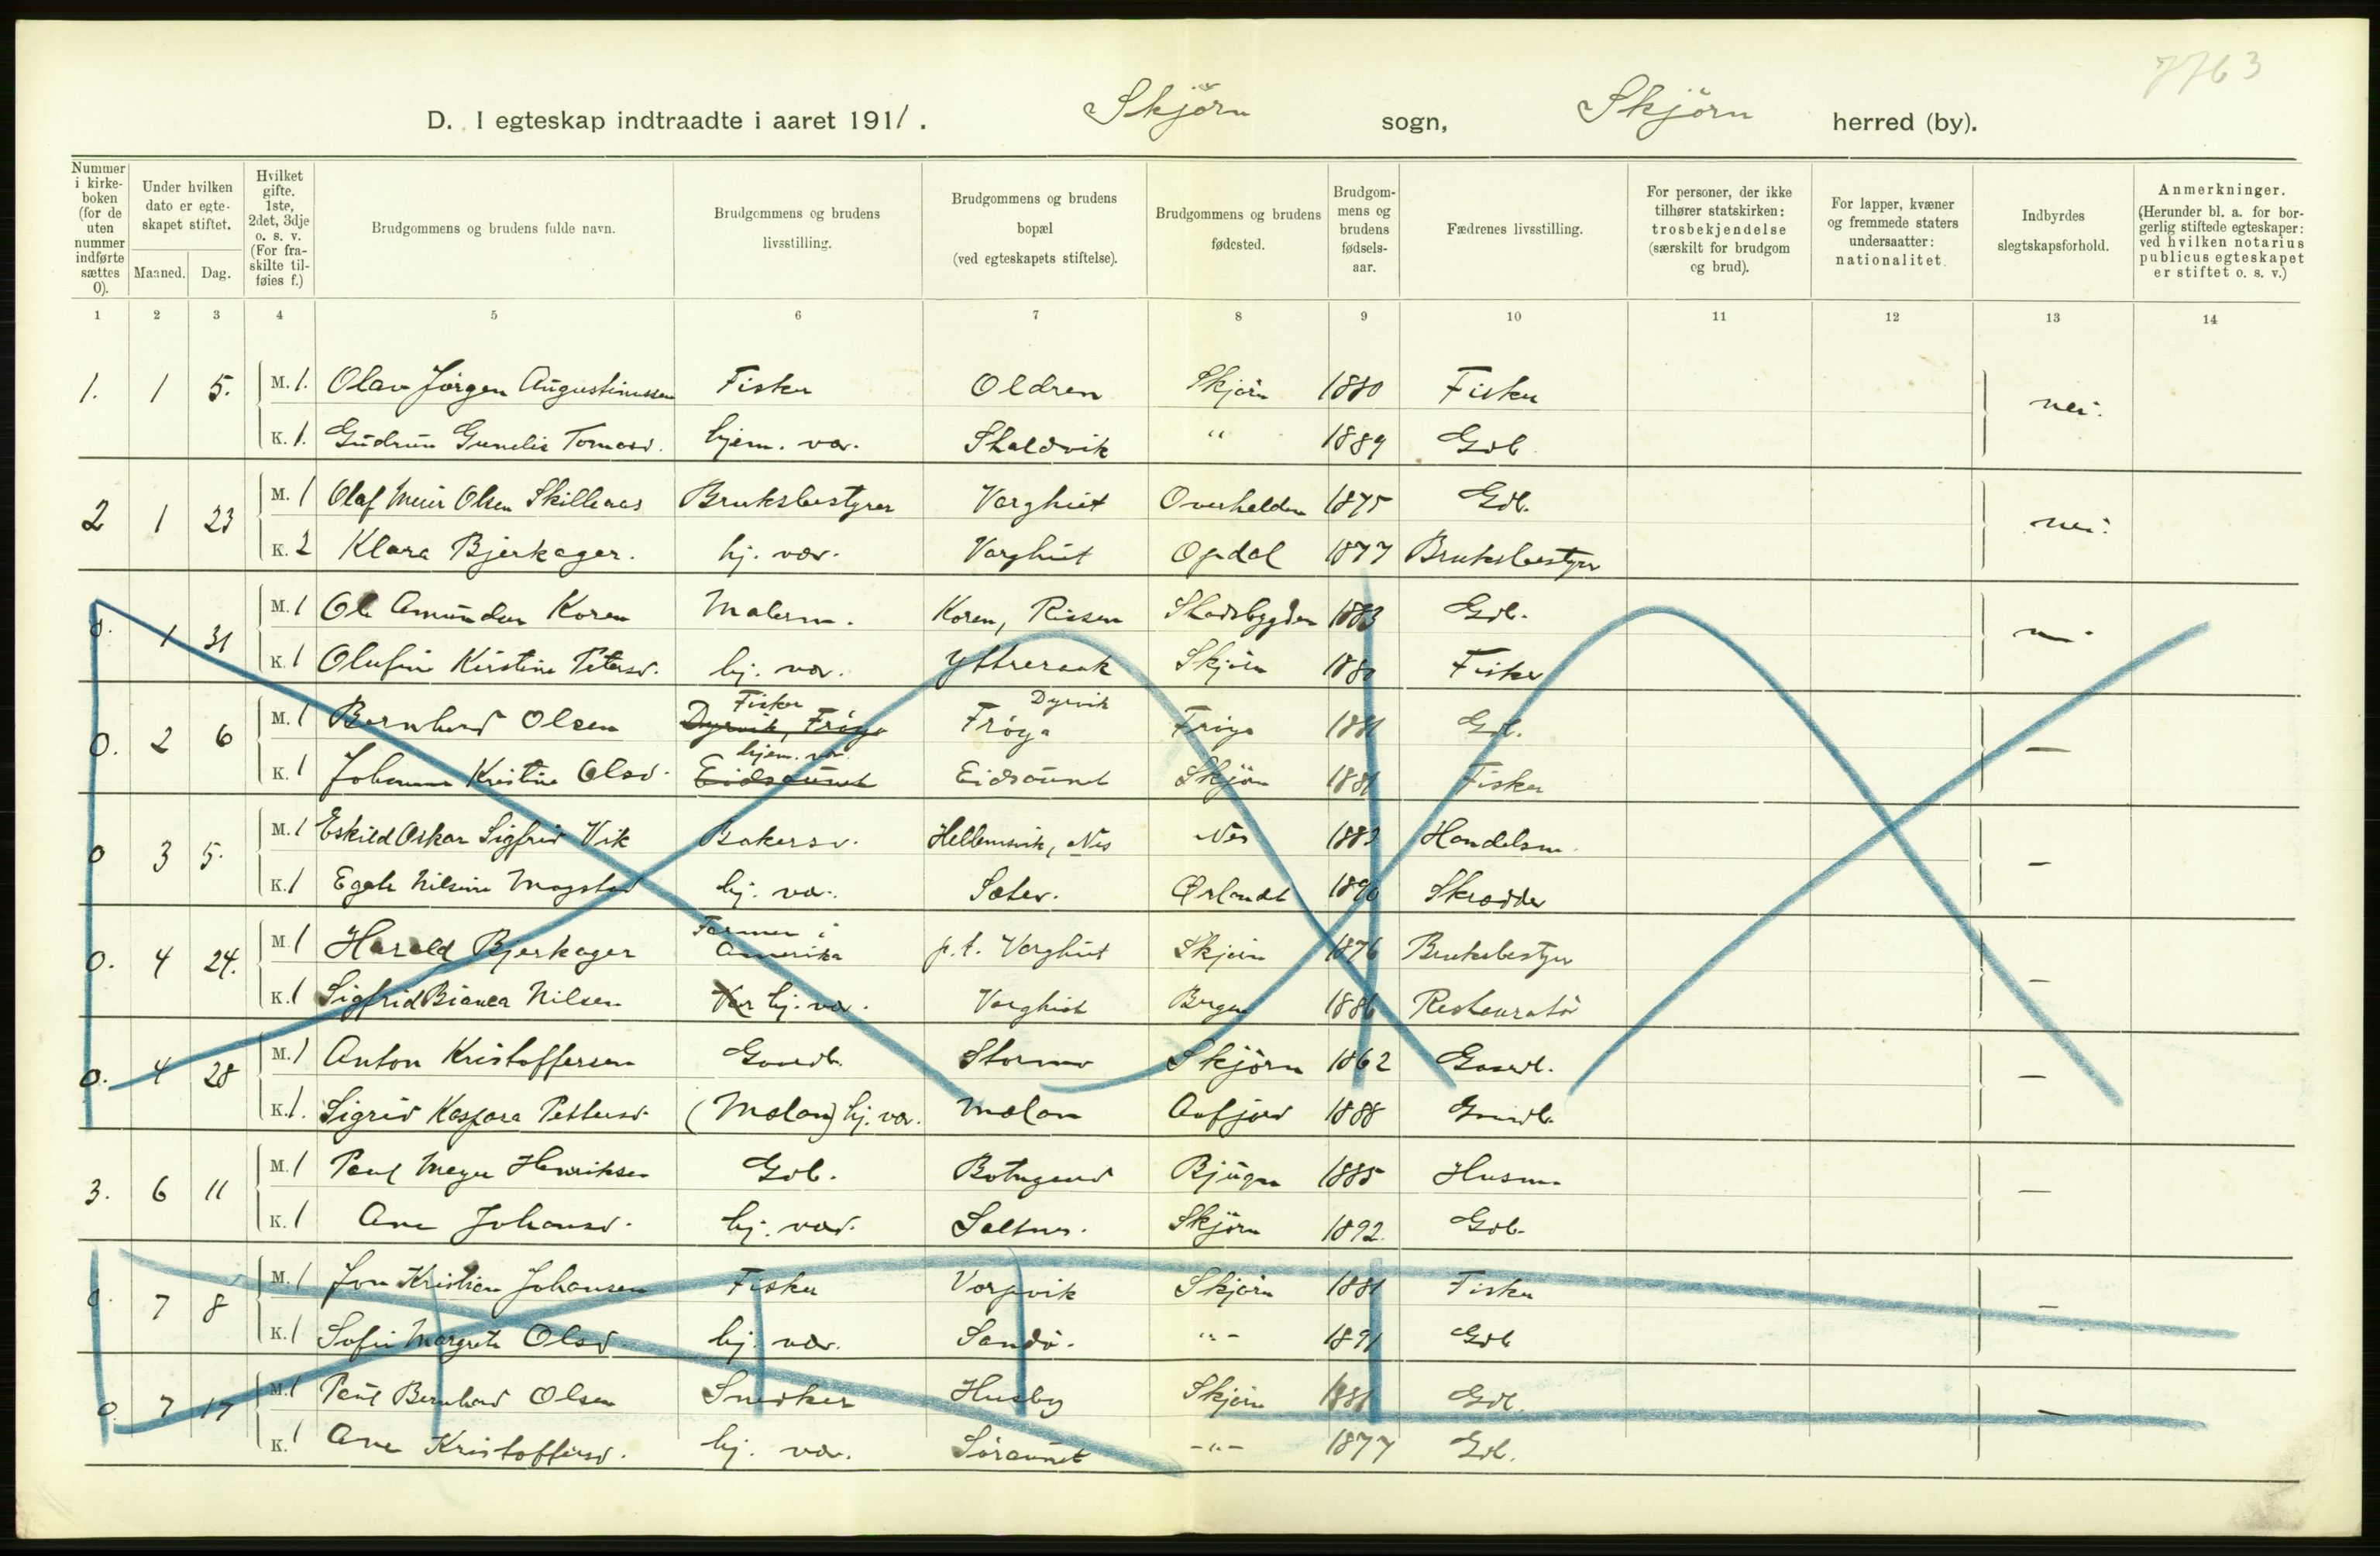 7763
D. I egteskap indtraadte i aaret 1911. Skjörn sogn, Skjörn herred (by).
Nummer i kirke- boken (for de uten nummer indførte sættes 0).
Under hvilken dato er egte- skapet stiftet.
Maaned. Dag.
Hvilket gifte. 1ste, 2det, 3dje o. s. v. (For fra- skilte til- føies f.)
Brudgommens og brudens fulde navn.
Brudgommens og brudens livsstilling.
Brudgommens og brudens bopæl (ved egteskapets stiftelse).
Brudgommens og brudens fødested.
Brudgom- mens og brudens fødsels- aar.
Fædrenes livsstilling.
For personer, der ikke tilhører statskirken: trosbekjendelse (særskilt for brudgom og brud).
For lapper, kvæner og fremmede staters undersaatter: nationalitet.
Indbyrdes slegtskapsforhold.
Anmerkninger. (Herunder bl. a. for bor- gerlig stiftede egteskaper: ved hvilken notarius publicus egteskapet er stiftet o. s. v.)
1 2 3 4 5 6 7 8 9 10 11 12 13 14
1. 1 5. M. 1. Olav Jörgen Augustinussen Fisker Oldren Skjörn 1880 Fisker nei.
K. 1. Gudrun Gunelie Tomasd. hjem. væ. Skaldvik " 1889 Gdb.
2 1 23 M. 1 Olaf Olsen Skilleaas Bruksbestyrer Varghiet Overhalden 1875 Gdb. nei.
K. 2 Klara Bjerkager. hj. væ. Varghiet Opdal 1877 Bruksbestyrer
0. 1 31 M. 1 Ole Amundsen Koren Malerm. Koren, Rissen Stadsbygden 1883 Gdb.
K. 1 Olufine Kirstine Petersd. hj. væ. Yttreraak Skjörn 1880 Fisker
0. 2 6 M. 1 Bernhard Olsen Fisker Dyrvik, Fröya Dyrvik Fröya Fröya 1881 Gdb. —
K. 1 Johanna Kristine Olsd. hjem. væ. Eidsaunet Eidsaunet Skjörn 1881 Fisker
0 3 5. M. 1 Eskild Oskar Sigfrid Vik Bakersv. Hellemsvik, Nes Nes 1883 Handelsm. —
K. 1 Nilsine Magstad hj. væ. Sæter. Ørlandet 1890 Skrædder
0. 4 24. M. 1 Harald Bjerkager Farmer i Amerika p.t. Varghiet Skjörn 1876 Bruksbestyrer —
K. 1 Sigfrid Bianca Nilsen hj. væ. Varghiet Bergen 1886 Restauratör
0. 4 28 M. 1 Anton Kristoffersen Gaardb. Stormo Skjörn 1862 Gaardb. —
K. 1. Sigrid Kaspara Pettersd. (Mælan) hj. væ. Mælan Aafjord 1888 Gaardb.
3. 6 11 M. 1 Paul Meyer Henriksen Gdb. Botngaard Bjugn 1885 Husm. —
K. 1 Ane Johansd. hj. væ. Saltnes. Skjörn 1892. Gdb.
0. 7 8 M. 1 Jon Kristian Johansen Fisker Varpvik Skjörn 1881 Fisker —
K. 1 Sofie Margrete Olsd. hj. væ. Sandö. -"- 1891 Gdb
0. 7 17 M. 1 Paul Bernhard Olsen Snedker Husby Skjörn 1881 Gdb. —
K. 1 Ane Kristoffersd. hj. væ. Söraunet -"- 1877 Gdb.